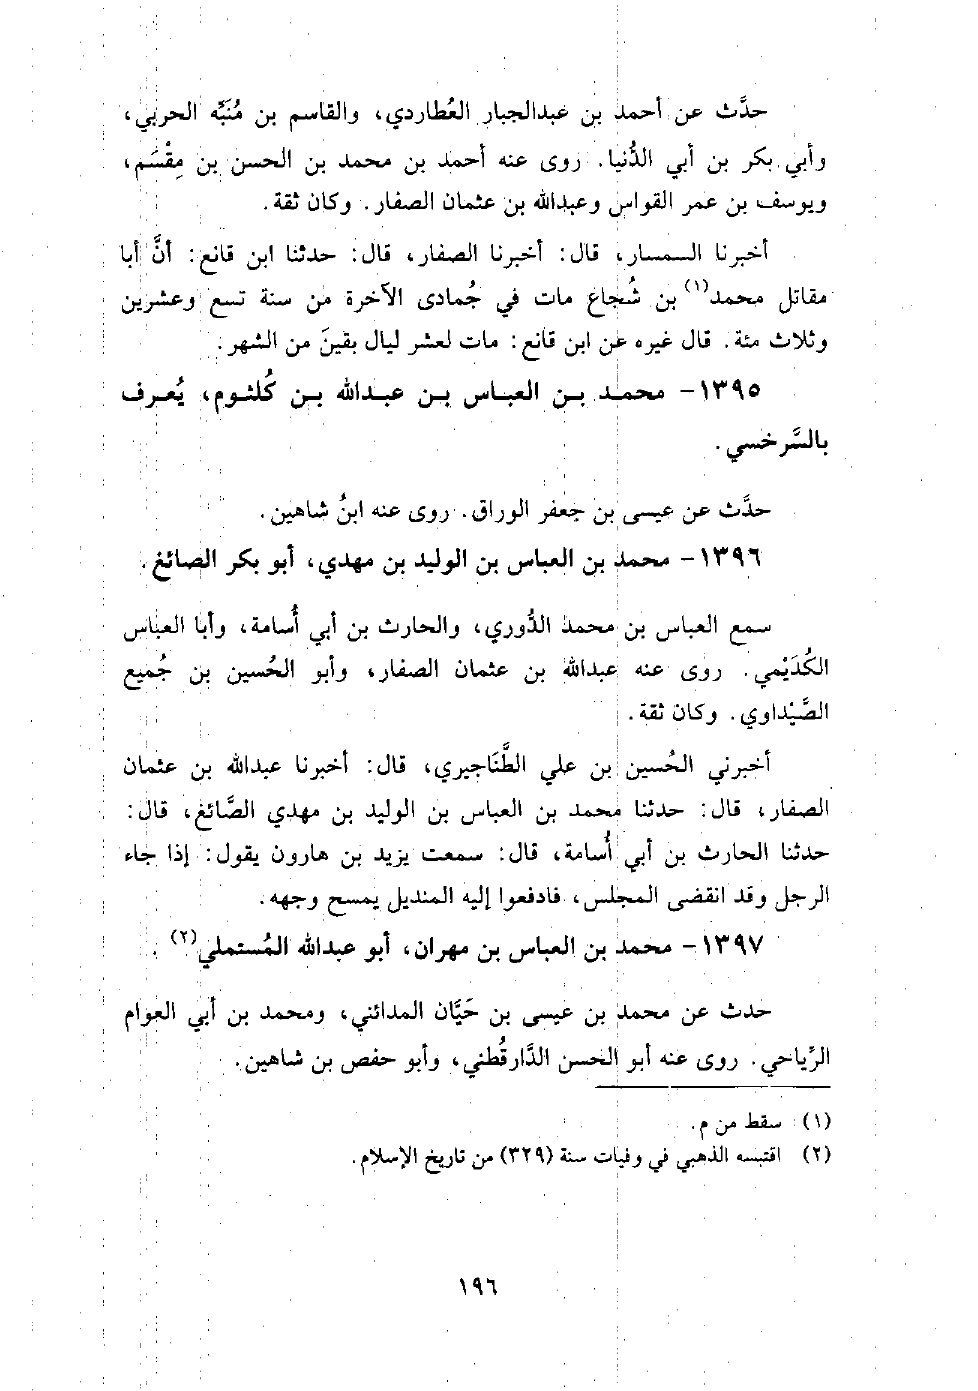 حدَّث عن أحمد بن عبدالجبار العُطاردي، والقاسم بن مُنَبِّه الحربي،
وأبي بكر بن أبي الدُّنيا. روى عنه أحمد بن محمد بن الحسن بن مِقْسَم،
ويوسف بن عمر القواس وعبدالله بن عثمان الصفار. وكان ثقة.
أخبرنا السمسار، قال: أخبرنا الصفار، قال: حدثنا ابن قانع: أنَّ أبا
مقاتل محمد(١) بن شُجاع مات في جُمادى الآخرة من سنة تسع وعشرين
وثلاث مئة. قال غيره عن ابن قانع: مات لعشر ليال بقينَ من الشهر.
١٣٩٥- محمد بن العباس بن عبدالله بن كُلثوم، يُعرف
بالسَّرخسي.
حدَّث عن عيسى بن جعفر الوراق. روى عنه ابنُ شاهين.
١٣٩٦- محمد بن العباس بن الوليد بن مهدي، أبو بكر الصائغ.
سمع العباس بن محمد الدُّوري، والحارث بن أبي أُسامة، وأبا العباس
الكُدَيْمي. روى عنه عبدالله بن عثمان الصفار، وأبو الحُسين بن جُميع
الصَّيْداوي. وكان ثقة.
أخبرني الحُسين بن علي الطَّنَاجيري، قال: أخبرنا عبدالله بن عثمان
الصفار، قال: حدثنا محمد بن العباس بن الوليد بن مهدي الصَّائغ، قال:
حدثنا الحارث بن أبي أُسامة، قال: سمعت يزيد بن هارون يقول: إذا جاء
الرجل وقد انقضى المجلس، فادفعوا إليه المنديل يمسح وجهه.
١٣٩٧- محمد بن العباس بن مهران، أبو عبدالله المُستملي(٢).
حدث عن محمد بن عيسى بن حَيَّان المدائني، ومحمد بن أبي العوام
الرِّياحي. روى عنه أبو الحسن الدَّارقُطني، وأبو حفص بن شاهين.
(١) سقط من م.
(٢) اقتبسه الذهبي في وفيات سنة (٣٢٩) من تاريخ الإسلام.
١٩٦